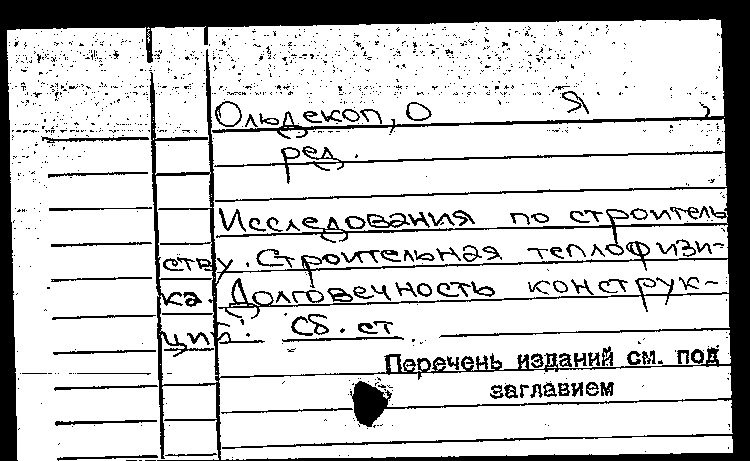 Ольдекоп, О Я ,
ред.
Исследования по строитель
ству. Строительная теплофизи-
ка. Долговечность конструк-
ций. Сб. ст
Перечень изданий см. под
заглавием